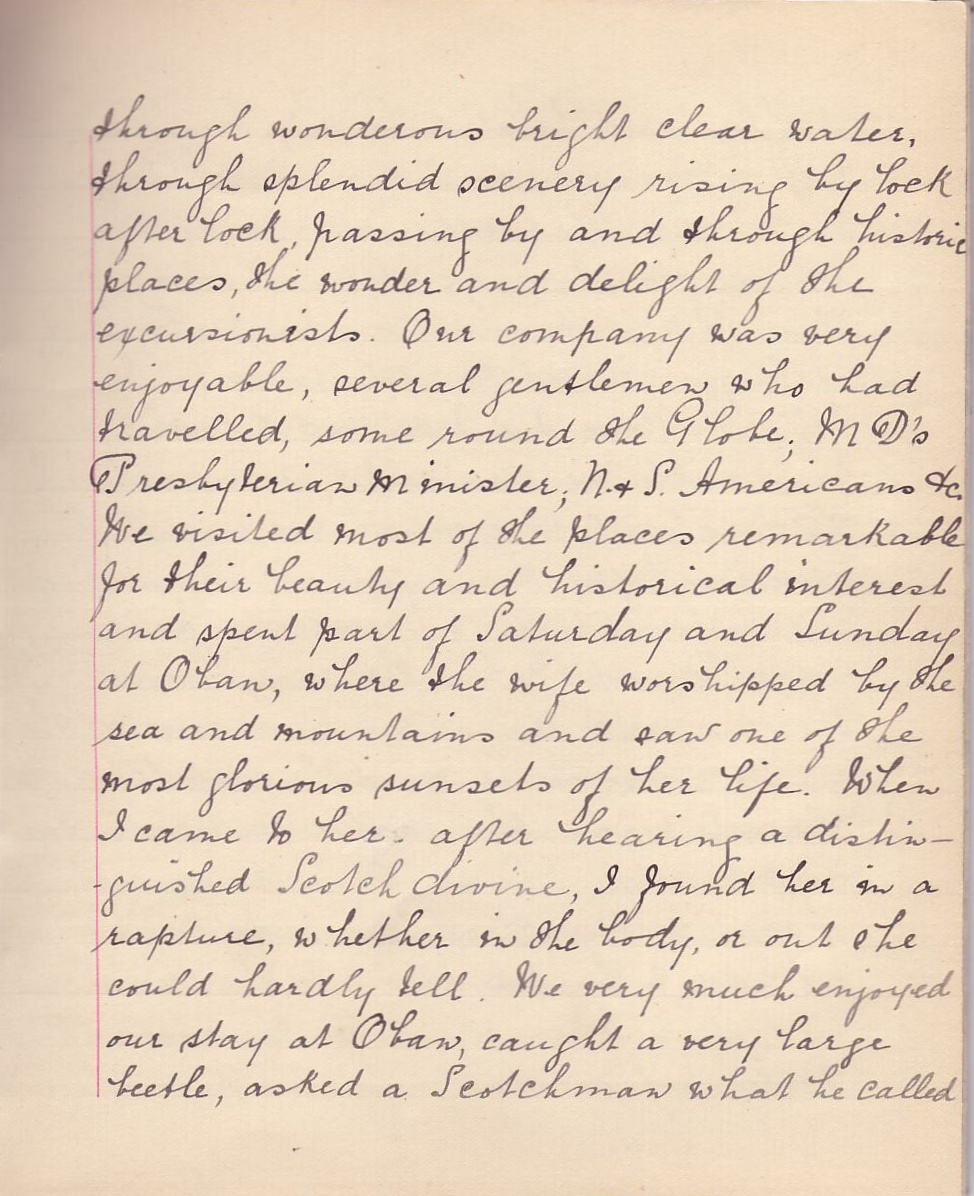 through wonderous bright clear water,
through splendid scenery rising by lock
after lock, passing by and through historic
places, the wonder and delight of the
excursionists. Our company was very
enjoyable, several gentlemen who had
travelled, some round the Globe; M D's
Presbyterian Minister; N. & S. Americans &c.
We visited most of the places remarkable
for their beauty and historical interest
and spent part of Saturday and Sunday
at Oban, where the wife worshipped by the
sea and mountains and saw one of the
most glorious sunsets of her life. When
I came to her - after hearing a distin-
-guished Scotch divine, I found her in a
rapture, whether in the body, or out she
could hardly tell. We very much enjoyed
our stay at Oban, caught a very large
beetle, asked a Scotchman what he called